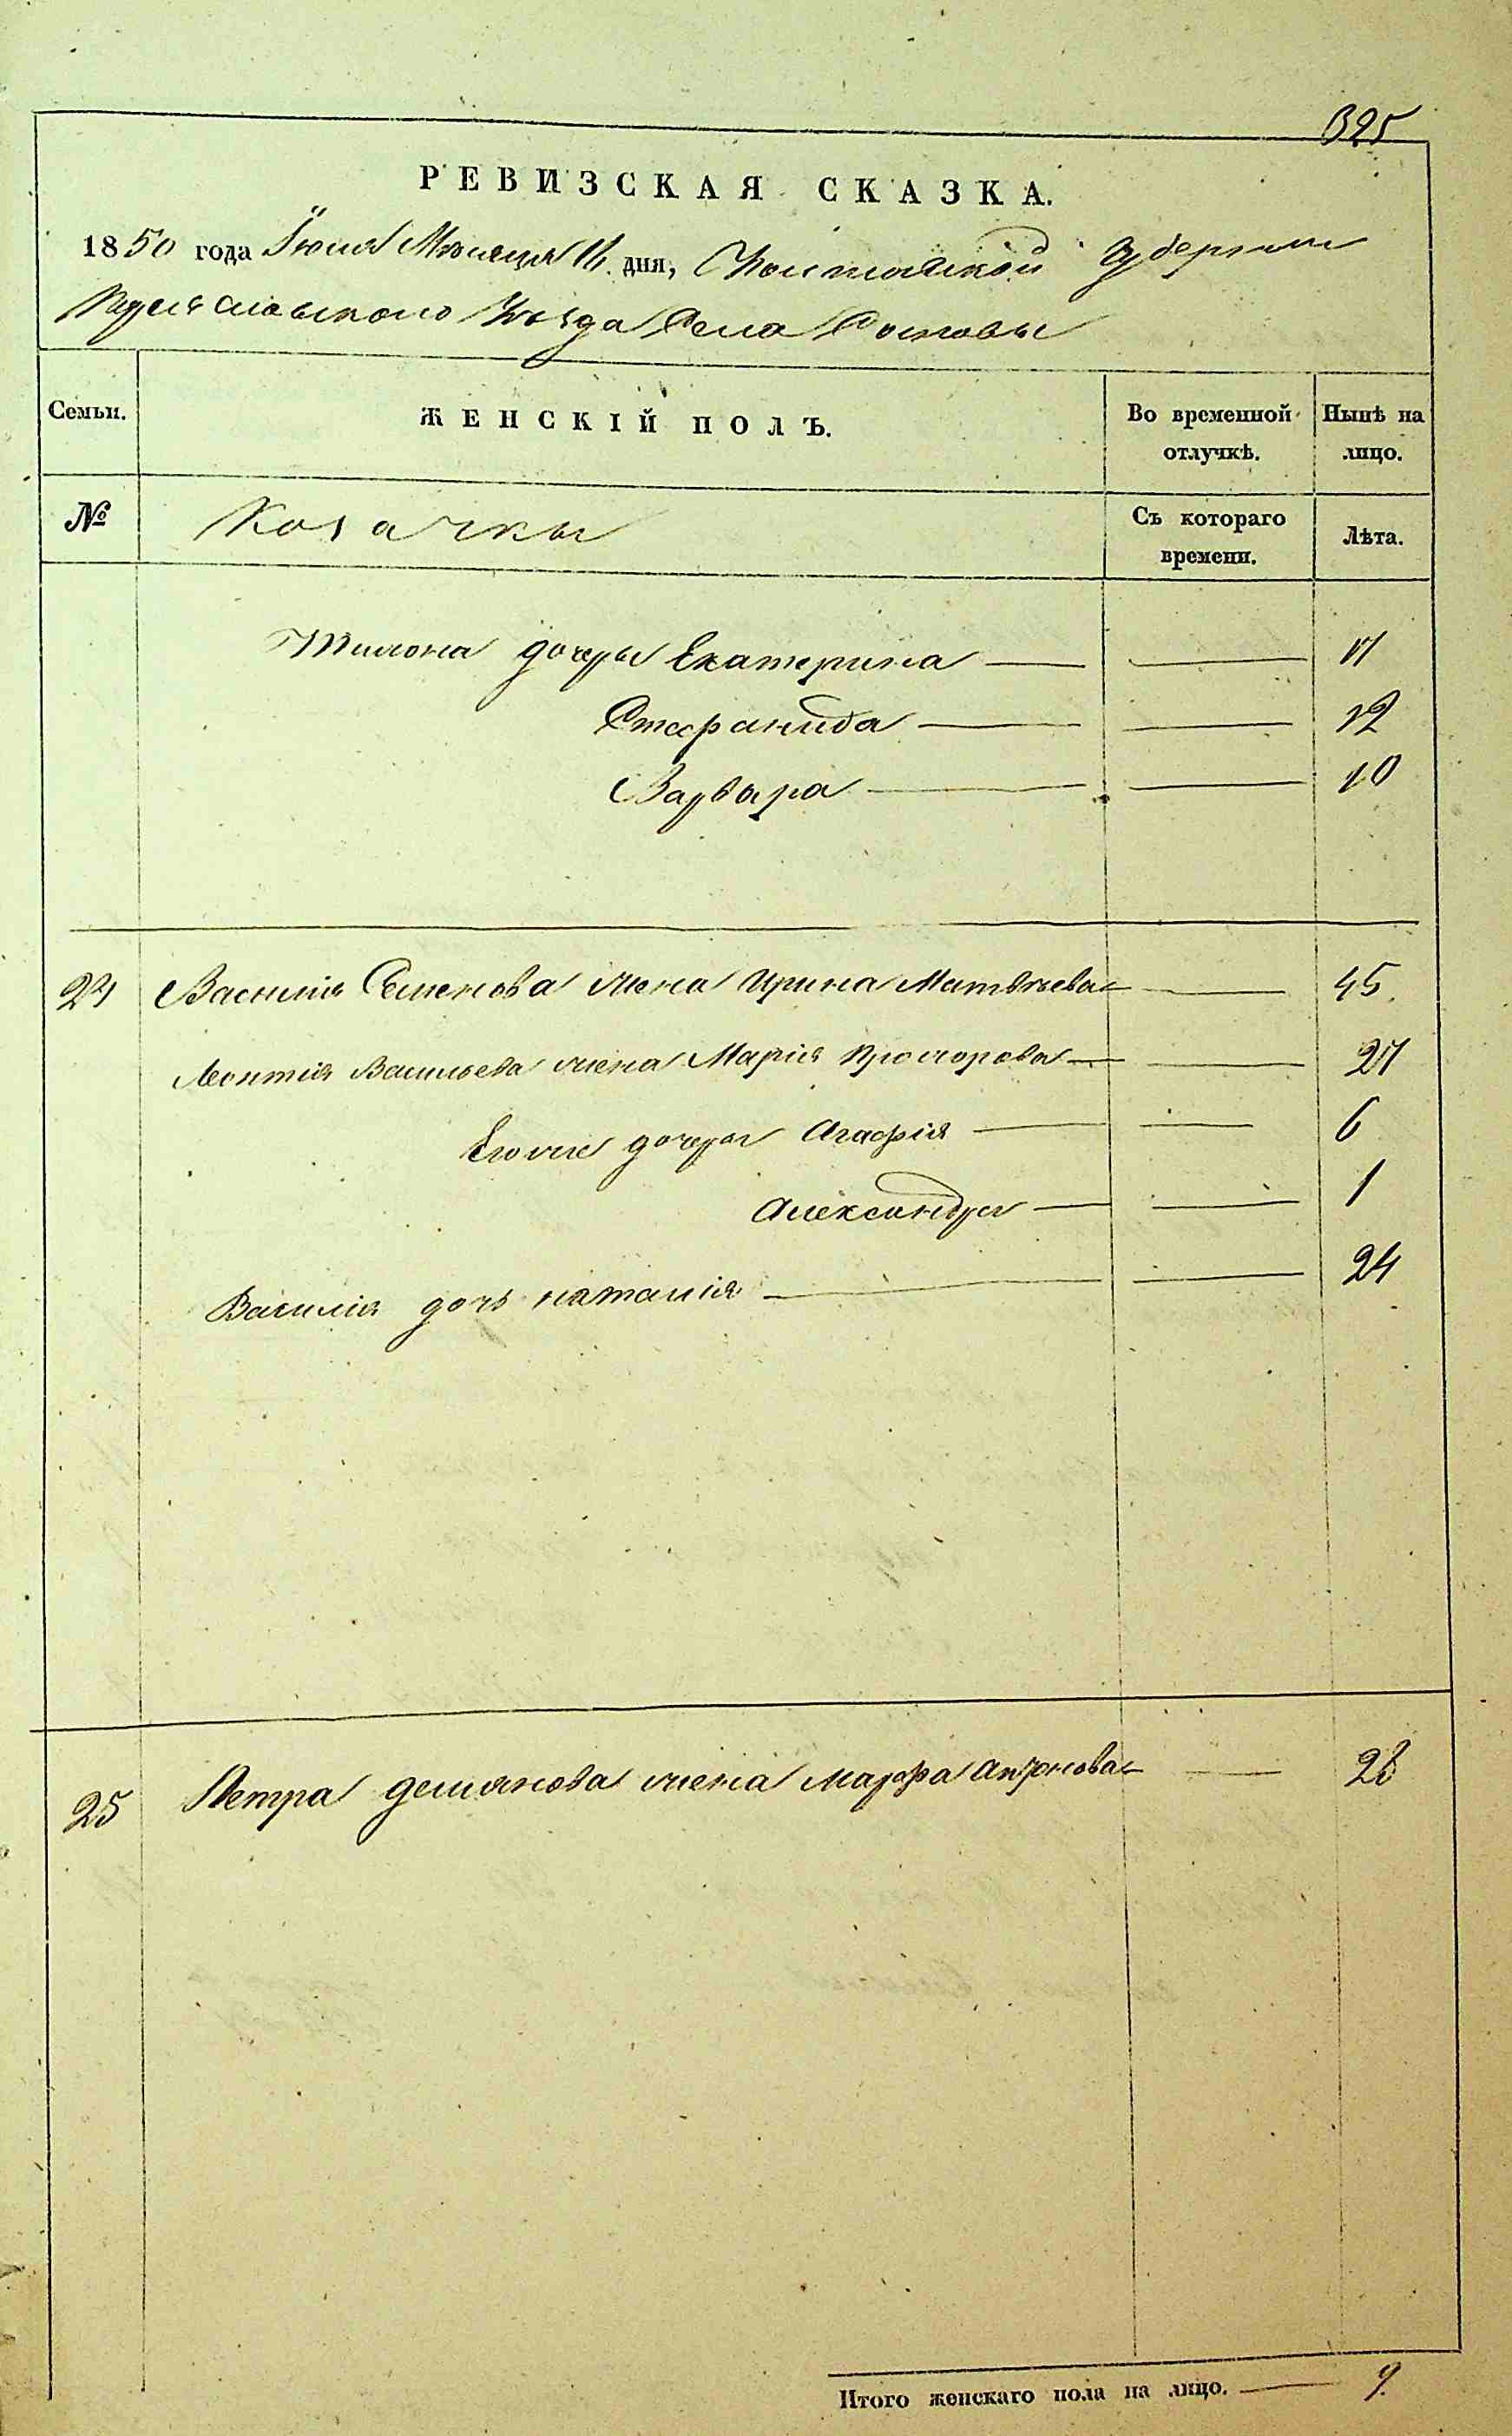 325
РЕВИЗСКАЯ СКАЗКА.
1850 года Іюля Мѣсяца 11 дня, Полтавской Губерніи
Переяславского Уѣзда Села Сосновы
Семьи. ЖЕНСКІЙ ПОЛЪ. Во временной отлучкѣ. Нынѣ на лицо.
№ Козачкы Съ котораго времени. Лѣта.
дочеры Екатерина — — 17
Стефанида — — 12
Варвара — — 10
24 Василія Семенова жена Ирина Матвѣева — 45
Леонтія Васильева жена Марія Прохорова — — 27
Еговые дочеры Агафія — — 6
Александра — — 1
Василія дочь наталія — — 24
25 Петра демянова жена марфа Антонова — 26
Итого женскаго пола на лицо. — 9.